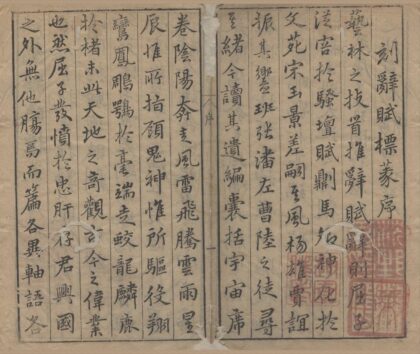 刻辭賦標蒙序
藝林之技首推辭賦辭則屈子
從容於騷壇賦則馬卿神化於
文苑宋玉景差嗣其風楊雄賈誼
振其響班張潘左曹陸之徒尋
其緒今讀其遺編囊括宇宙席
序
卷陰陽奔走風雷飛騰雲雨星
辰惟所指顧鬼神惟所驅役翔
鸞鳳鵰鶚於毫端走鮫龍麟鹿
於楮末此天地之奇觀古今之偉業
也然屈子發憤於忠肝存君興國
之外無他腸焉而篇各異軸語各